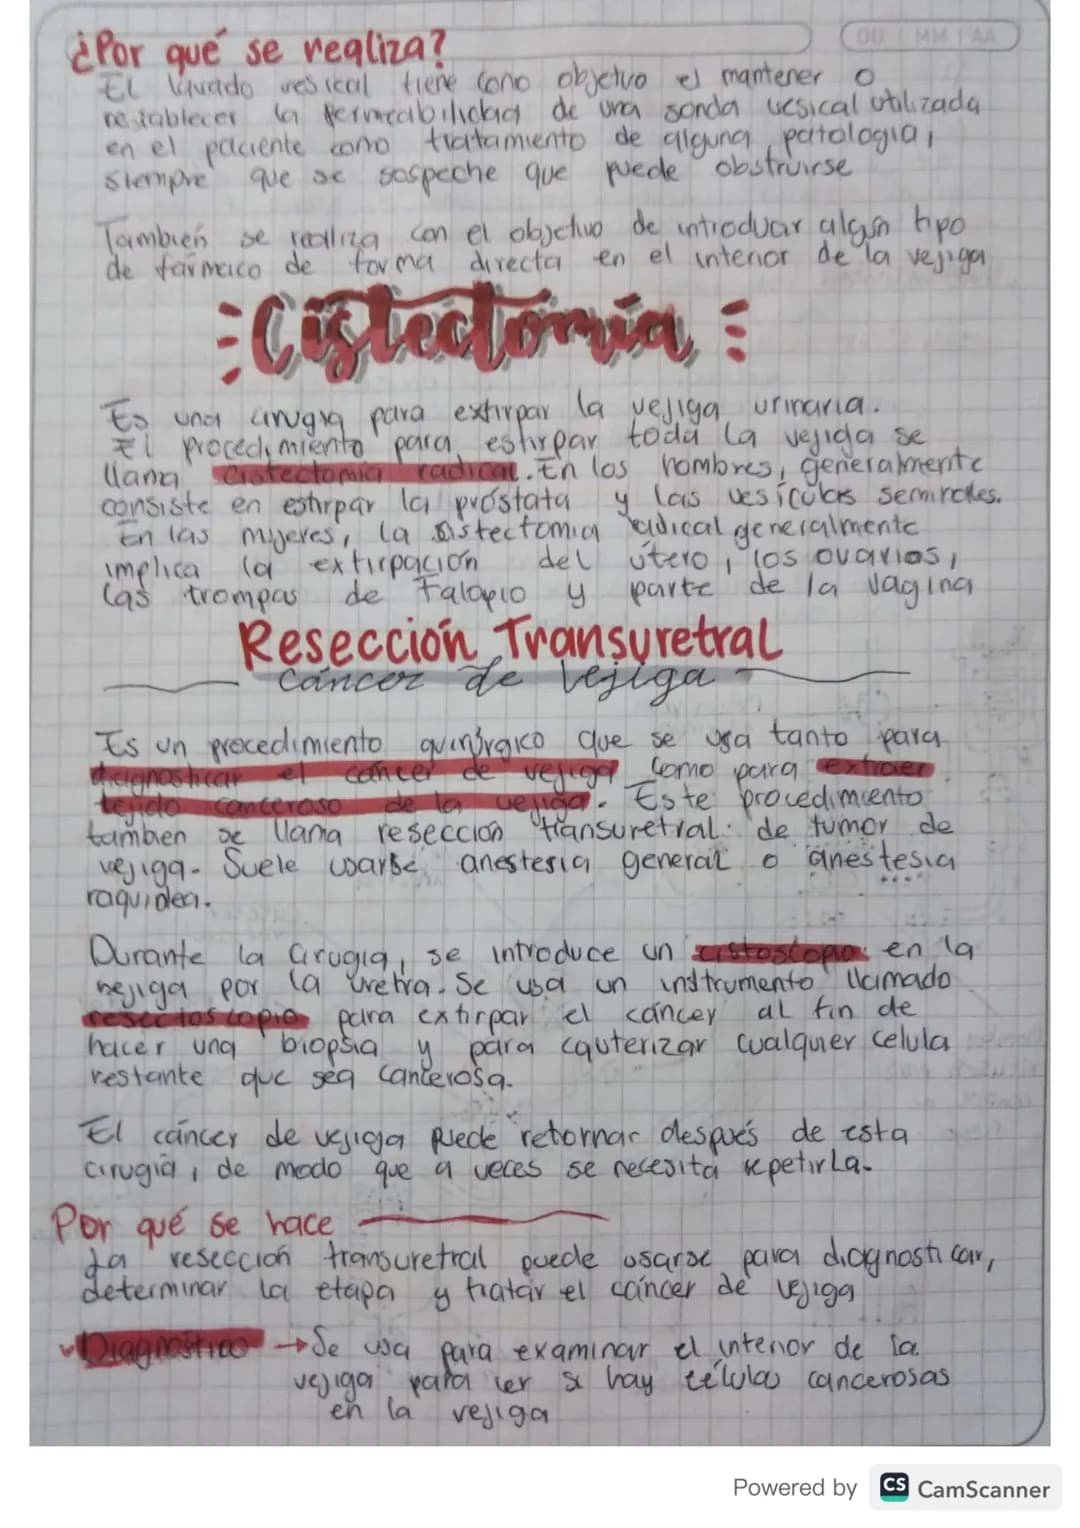 ¿Por qué se realiza?
DD MM AA
El lavado vesical tiene como objetivo el mantener o
restablecer la permeabilidad de una sonda vesical utilizada
en el paciente como tratamiento de alguna patologia,
siempre que se sospeche que puede obstruirse
También se realiza con el objetivo de introducir algún tipo
de fármaco de forma directa en el interior de la vejiga
Cistectomía
Es una cirugia para extirpar la vejiga urinaria.
El procedimiento para estirpar toda la vejiga se
llama cistectomia radical. En los hombres, generalmente
consiste en estirpar la próstata y las vesículas seminales.
En las mujeres, la sistectomia radical generalmente
implica la extirpación del útero, los ovarios,
las trompas de Falopio y parte de la vagina
Resección Transuretral
Cáncer de Vejiga
Es un procedimiento quirúrgico que se usa tanto para
diagnosticar el cancer de vejiga como para extraer
tejido canceroso de la vejiga. Este procedimiento
tambien se llama resección transuretral de tumor de
vejiga. Suele usarse anestesia general o anestesia
raquidea.
Durante la Cirugia, se introduce un cistoscopio en la
vejiga por la uretra. Se usa un instrumento llamado
resectoscopio para extirpar el cáncer al fin de
hacer una biopsia y para cauterizar cualquier celula
restante que sea cancerosa.
El cáncer de vejiga puede retornar después de esta
cirugia, de modo que a veces se necesita repetirla.
Por qué se hace
La resección transuretral puede usarse para diagnosticar,
determinar la etapa y tratar el cáncer de vejiga
Diagnostico → Se usa para examinar el interior de la
vejiga para ver si hay células cancerosas
en la vejiga
Powered by CS CamScanner